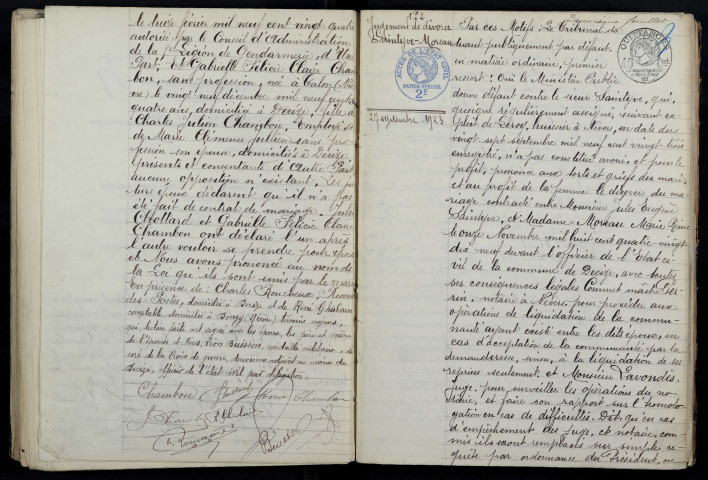 le treize février mil neuf cent vingt quatre
autorisé par le Conseil d'Administration
de la Légion de Gendarmerie, d'Une
Part; et Gabrielle Félicie Claire Cham
bon, sans profession, née à
le vingt neuf décembre mil neuf cent
quatre ans, domiciliée à Decize, fille de
Charles Julien Chambon, Employé, et
de Marie Clémence sans pro
fession son épouse, domiciliés à Decize
présents et consentants d'Autre Part
aucune opposition n'existant. Les fu
turs époux déclarent qu'il n'a pas
été fait de contrat de mariage. Jules
Chottard et Gabrielle Félicie Claire
Chambon ont déclaré l'un après
l'autre vouloir se prendre pour époux
et Nous avons prononcé au nom de
la Loi qu'ils sont unis par le mariage
en présence de: Charles Receveur
des Postes, domicilié à Decize et de René
comptable domicilié à témoins majeurs,
qui, lecture faite ont signé avec les époux, les père et mère
de l'épouse et Nous, Léon Buisson, médaille militaire, dé
coré de la Croix de guerre, deuxième adjoint au maire de
Decize, officier de l'état civil par délégation.
Chambon
N° 22
Jugement de divorce
Sainteyve - Moreau
27 septembre 1923
ACTES DE L'ÉTAT CIVIL
PAPIER SPÉCIAL
2F
Par ces Motifs: Le Tribunal sta
tuant publiquement par défaut,
en matière ordinaire, premier
ressort: Ouï le Ministère Public
donne défaut contre le sieur Sainteyve, qui,
quoique régulièrement assigné, suivant ex
ploit de Leroy, huissier à Nevers, en date du
vingt sept septembre mil neuf cent vingt trois
enregistré, n'a pas constitué avoué, et pour le
profit, prononce aux torts et griefs du mari,
et au profit de la femme le divorce du ma
riage contracté entre Monsieur Jules Eugène
Sainteyve, et Madame Moreau Marie Reine
le onze Novembre mil huit cent quatre vingt
dix neuf devant l'officier de l'Etat ci
vil de la commune de Decize, avec toutes
ses conséquences légales Commet maître Ser
rin, notaire à Nevers, pour procéder aux
opérations de liquidation de la commu
nauté ayant existé entre les dits époux, en
cas d'acceptation de la communauté par la
demanderesse, sinon, à la liquidation de ses
reprises seulement, et Monsieur Lavondès
Juge, pour surveiller les opérations du no
taire, et faire son rapport sur l'homolo
gation en cas de difficultés. Dit, qu'en cas
d'empêchement des juge, et notaire, com
mis ils seront remplacés sur simple re
quête par ordonnance du Président, ou